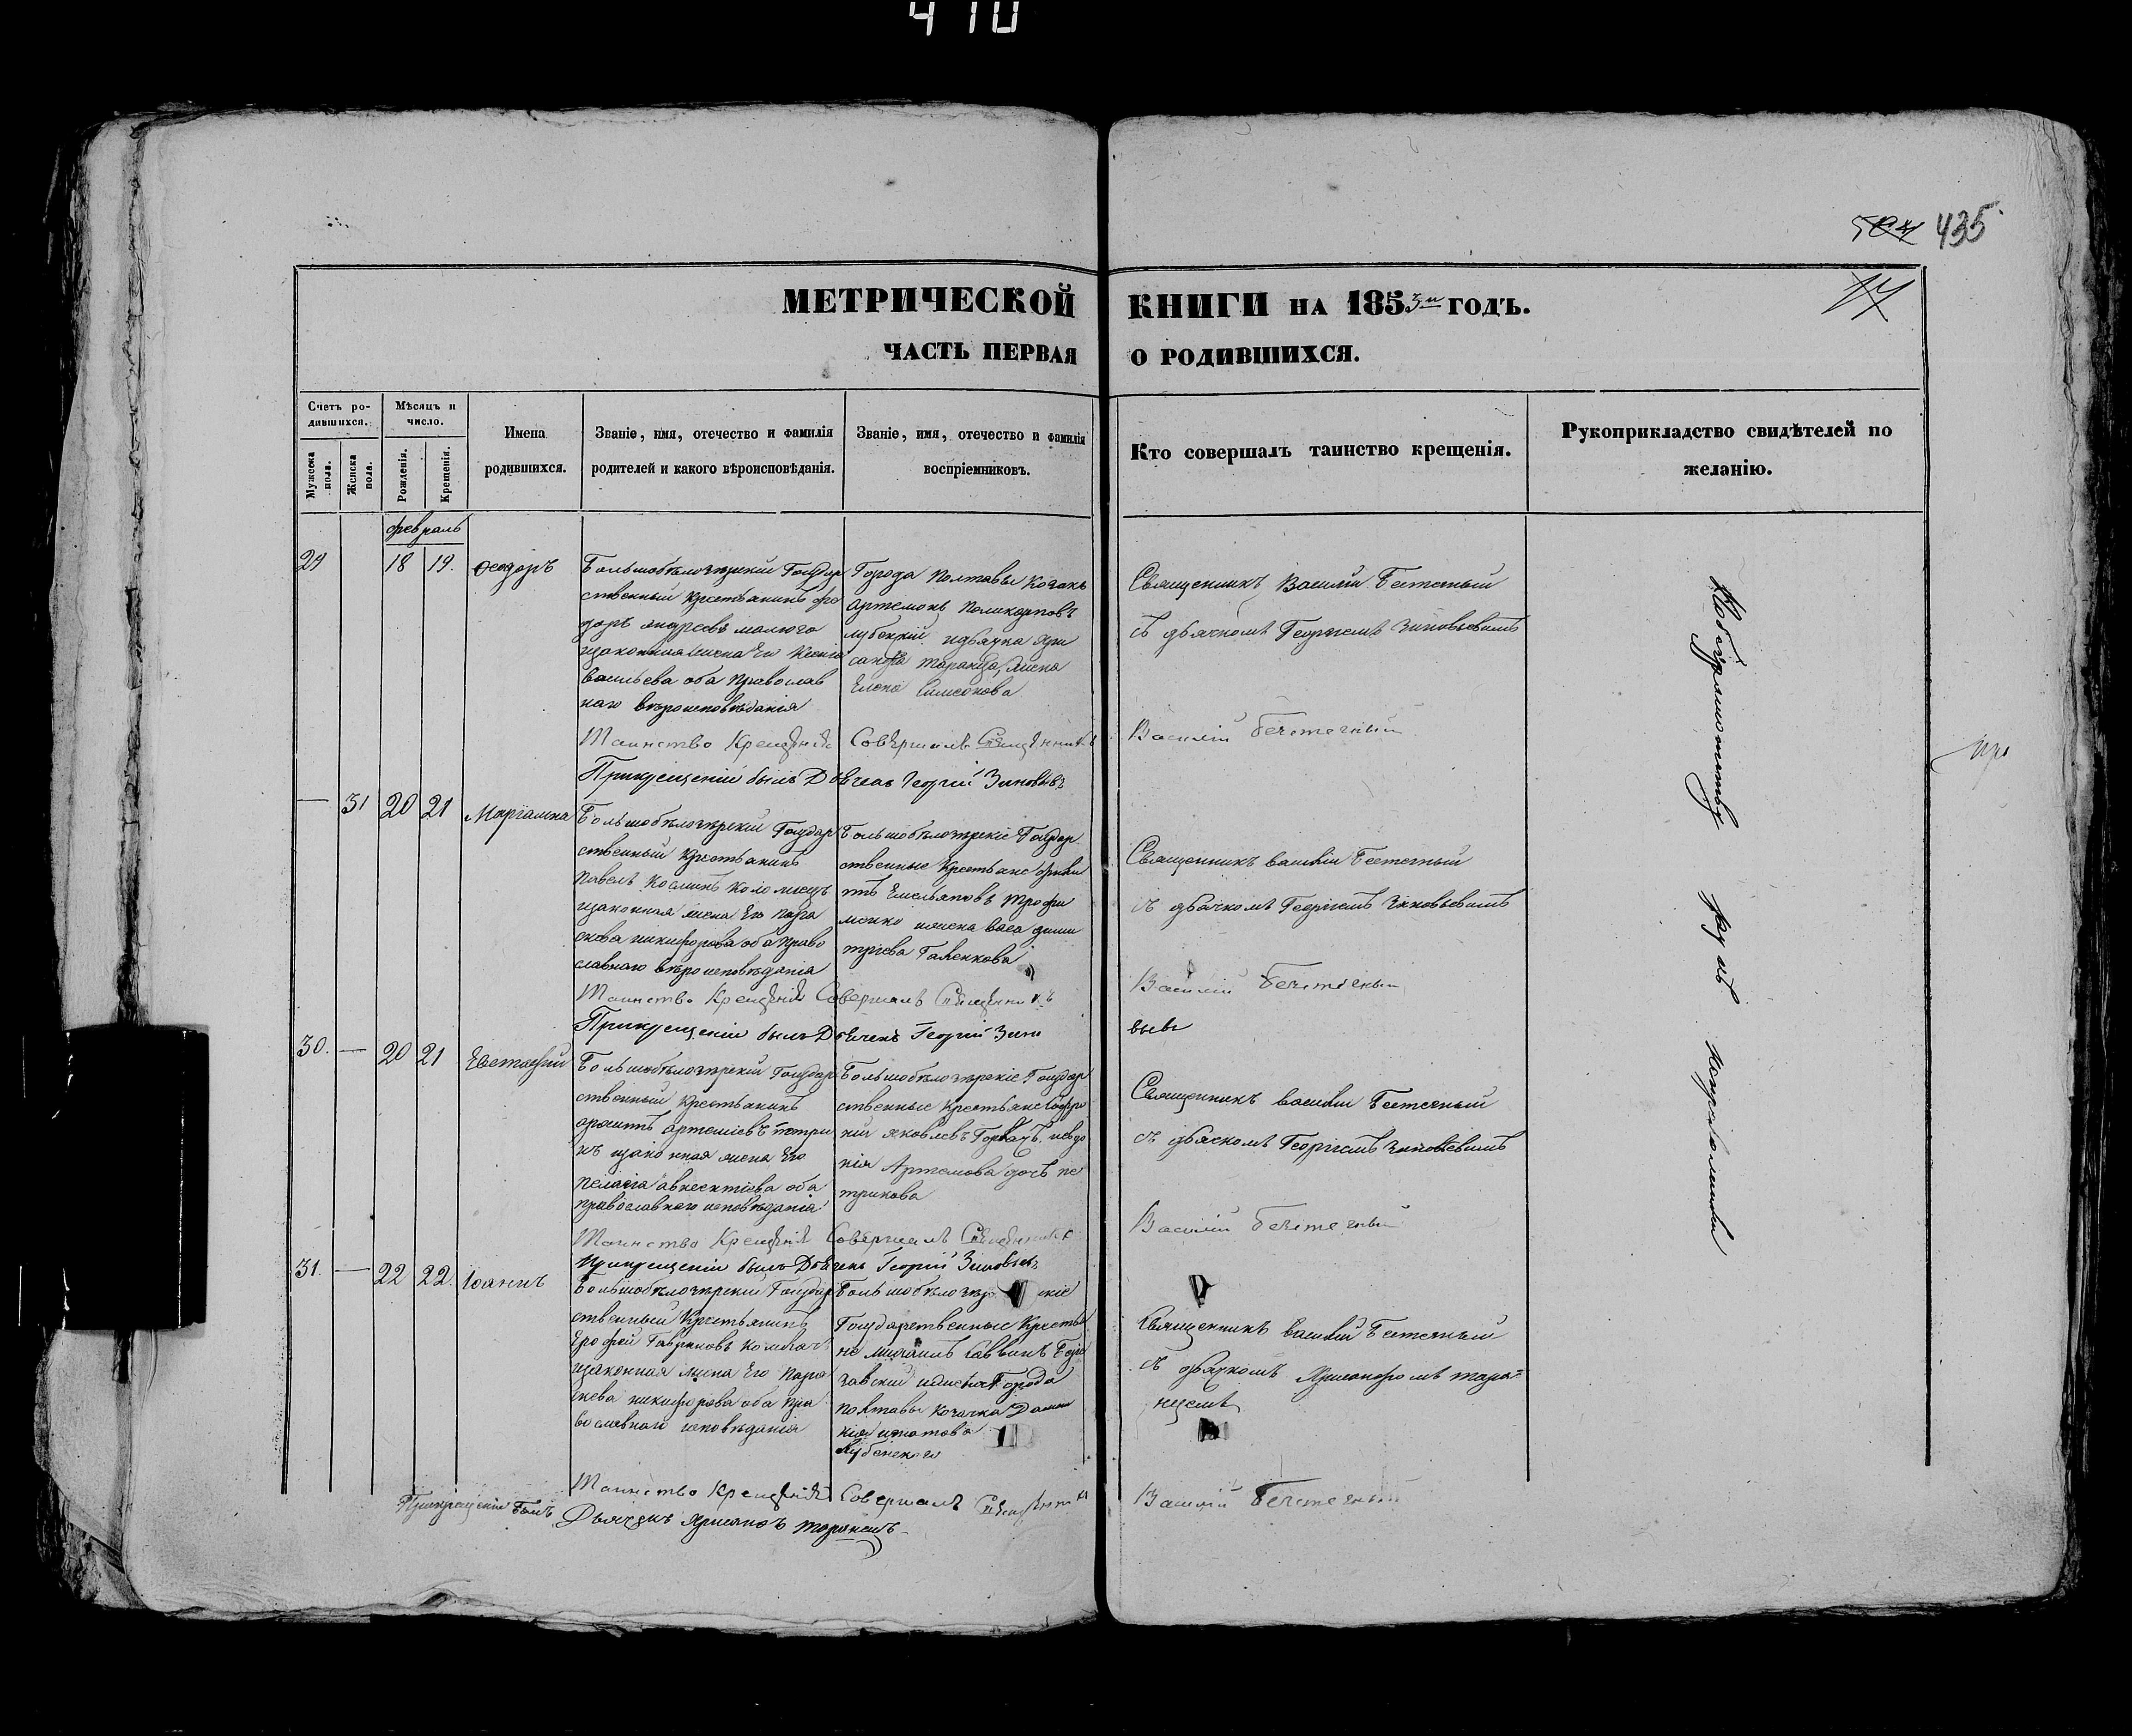 410
504 435
17
МЕТРИЧЕСКОЙ КНИГИ НА 1853й ГОДЪ.
ЧАСТЬ ПЕРВАЯ О РОДИВШИХСЯ.
Счетъ ро-
дившихся.
Мужеска пола.
Женска пола.
Мѣсяцъ и
число.
Рожденія.
Крещенія.
Имена
родившихся.
Званіе, имя, отечество и фамилія
родителей и какого вѣроисповѣданія.
Званіе, имя, отечество и фамилія
воспріемниковъ.
Кто совершалъ таинство крещенія.
Рукоприкладство свидѣтелей по
желанію.
февраль
29 18 19. Ѳеодоръ
Большобѣлозерскій Государ
ственный крестьянинъ Ѳео
доръ Андреевъ малюга
изаконная жена Его Ксенія
васильева оба православ
наго вѣроисповѣданія
Города Полтавы козакъ
Артемонъ Поликарповъ
лубенскій идьячка
Таранца жена
Елена Симеонова
Священникъ Василій
съ дьячкомъ Георгіемъ Зиновьевымъ
Таинство Крещенія Совершалъ Священникъ Василій
Прикрещеніи былъ Дьячекъ Георгій Зиновьевъ
— 31 20 21 Маріамна
Большобѣлозерскій Государ
ственный крестьянинъ
Павелъ Козминъ коломіецъ
изаконная жена Его пара
скева никифорова оба право
славнаго вѣроисповѣданія
Большобѣлозерскіе Государ
ственные крестьяне
Емельяновъ Трофи
менко ижена васа дими
тріева
Священникъ василій
съ дьячкомъ Георгіемъ Зиновьевымъ
Таинство Крещенія Совершалъ Священникъ Василій
Прикрещеніи былъ Дьячекъ Георгій Зино
вьевъ
30. — 20 21 Евстафій
Большобѣлозерскій Государ
ственный крестьянинъ
Артеміевъ петри
къ изаконная жена Его
Пелагія авксентіева оба
православнаго исповѣданія
Большобѣлозерскіе Государ
ственные крестьяне Софро
ній яковлевъ Горбачъ иевдо
кія Артемова дочь пе
трикова
Священникъ василій
съ дьячкомъ Георгіемъ Зиновьевымъ
Таинство Крещенія Совершалъ Священникъ Василій
Прикрещеніи былъ Дьячекъ Георгій Зиновьевъ
31. — 22 22. Іоаннъ
Большобѣлозерскій Государ
ственный Крестьянинъ
Ерофей Гавриловъ
изаконная жена Его Пара
скева никифорова оба пра
вославнаго исповѣданія
Большобѣлозерскіе
Государственные Крестья
не Михаилъ Саввинъ
ижена Города
Полтавы козачка Домни
кія игнатова
Лубенскаго
Священникъ василій
съ дьячкомъ Таран
цемъ
Таинство Крещенія Совершалъ Священникъ Василій
Прикрещеніи былъ
Дьячекъ Таранецъ